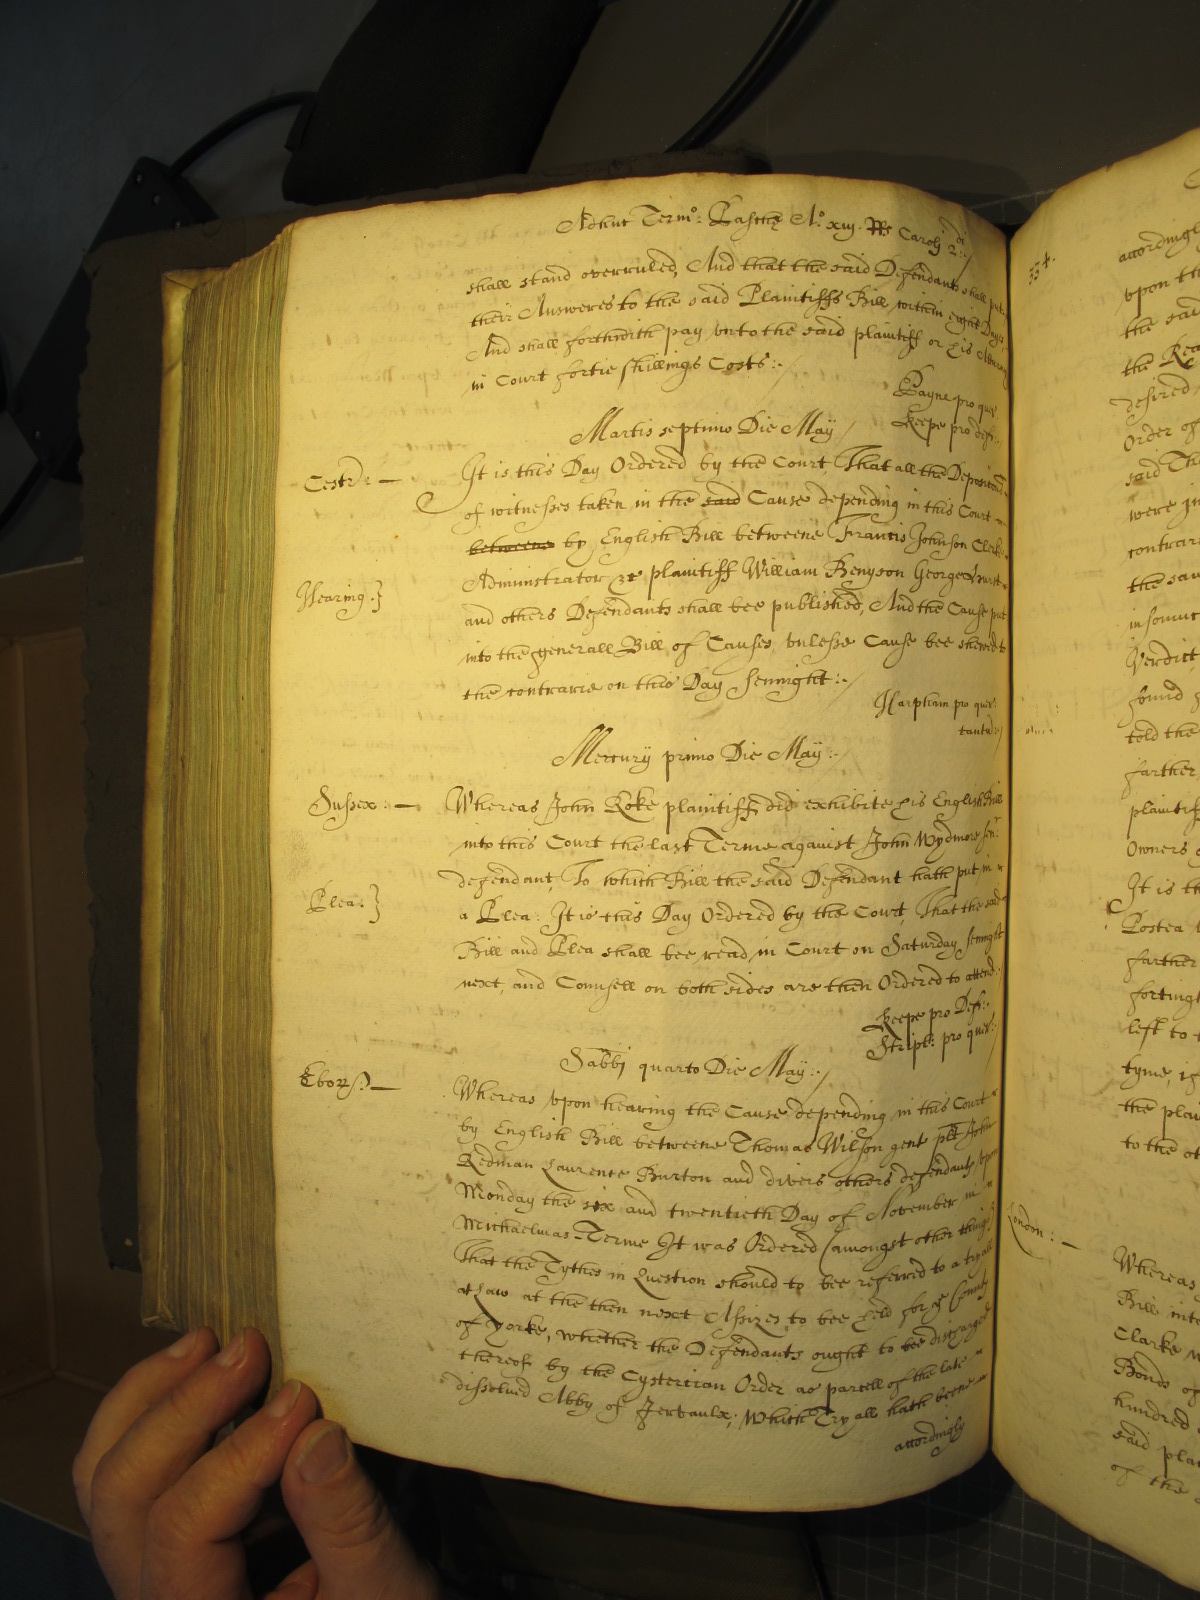 Adhuc Term°: Pasche A°. xiij. R's Caroli 2di:
shall stand overruled, And that the said Defendants shall put
their Answeres to the said Plaintiffs Bill within eight Dayes,
And shall forthwith pay vnto the said plaintiff or his Attorney
in Court fortie shillings Costs:.
Payne pro quer
Keepe pro def:.
Martis septimo Die May
Cestr: It is this Day Ordered by the Court That all the Deposicons
of witnesses taken in the said Cause depending in this Court
betweene by English Bill betweene Francis Johnson Clerke
Hearing.} Administrator &c plaintiff William Benyson George
and others Defendants shall bee published, And the Cause put
into the generall Bill of Causes, vnlesse Cause bee shewed to
the contrarie on this Day Sennight:.
Harpham pro quer.
tantu:
Mercury primo Die May:.
Sussex: Whereas John Roke plaintiff did exhibite his English Bill
into this Court the last Terme against John Wydmore senr
defendant, To which Bill the said Defendant hath put in
Plea:} a Plea: It is this Day Ordered by the Court, That the said
Bill and Plea shall bee read in Court on Saturday sennight
next, and Counsell on both sides are then Ordered to attend:.
Keepe pro Def:.
Stript: pro quer:
Sabbi quarto Die May:.
Ebor: Whereas vpon hearing the Cause depending in this Court
by English Bill betweene Thomas Wilson gent plt John
Redman Laurence Burton and divers others defendants vpon
Monday the six and twentieth Day of November in
Michaelmas-Terme It was Ordered (amongst other things)
That the Tythes in Question should to bee referred to a tryall
at Law at the then next Assizes to bee held for ye County
of Yorke, whether the Defendants ought to bee discharged
thereof by the Cystercian Order as parcell of the late
dissolved Abby of Jervaulx; Which Tryall hath beene
accordingly
334.
accordingly
vpon th
the said
the Rea
desired,
Order of
said Th
were in
contrar
the sam
insomuc
Verdict
found
told the
farther
plaintiff
Owners
It is th
Postea
farther
left to
tyme, is
the plai
to the ot
London:
Whereas
Bill inte
Clarke
Bond of
hundred
said plai
of the